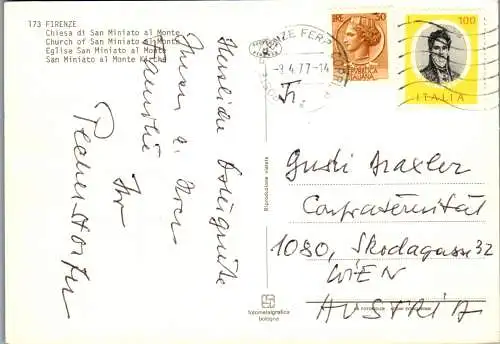 173 FIRENZE
Chiesa di San Miniato al Monte
Church of San Miniato al Monte
Eglise San Miniato al Monte
San Miniato al Monte Kirche
Herzliche Ostergrüße
Ihnen u. Ihrer
Familie
Ihr
FIRENZE FERROVIA
-8.4.77-14
LIRE 50
REPUBBLICA
ITALIANA
L 100
ITALIA
Fr.
Gusti Draxler
Confraternität
1080, Skodagasse 32
WIEN
AUSTRIA
Riproduzione vietata
fotometalgrafica
bologna